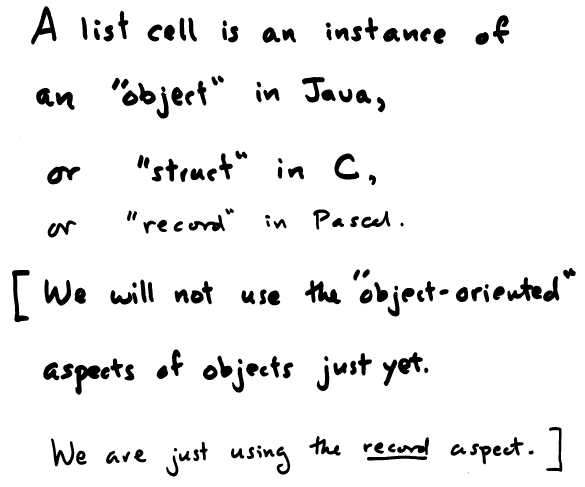 A list cell is an instance of
an "object" in Java,
or "struct" in C,
or "record" in Pascal.
[ We will not use the "object-oriented"
aspects of objects just yet.
We are just using the record aspect. ]